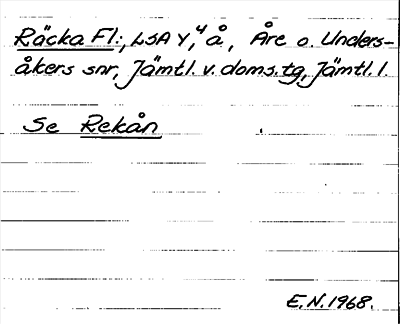 Räcka Fl:, LSA Y, 4 å, Åre o. Unders-
åkers snr, Jämtl. v. doms. tg, Jämtl. l.
Se Rekån
E.N. 1968.